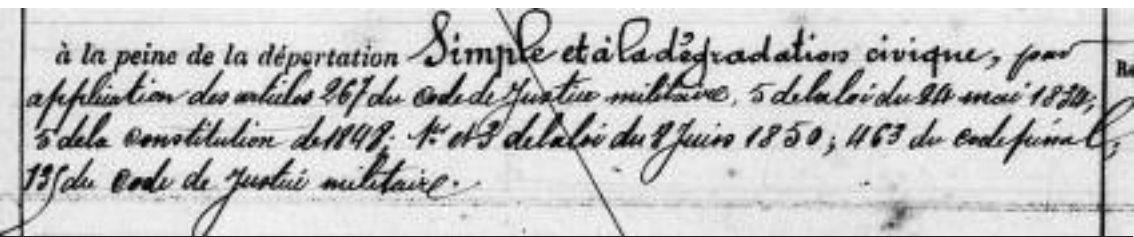 à la peine de la déportation Simple et à la dégradation civique, par
application des articles 267 du code de Justice militaire, 5 de la loi du 24 mai 1834;
5 de la constitution de 1848; 1er et 3 de la loi du 8 Juin 1850; 463 du code pénal;
135 du Code de Justice militaire.